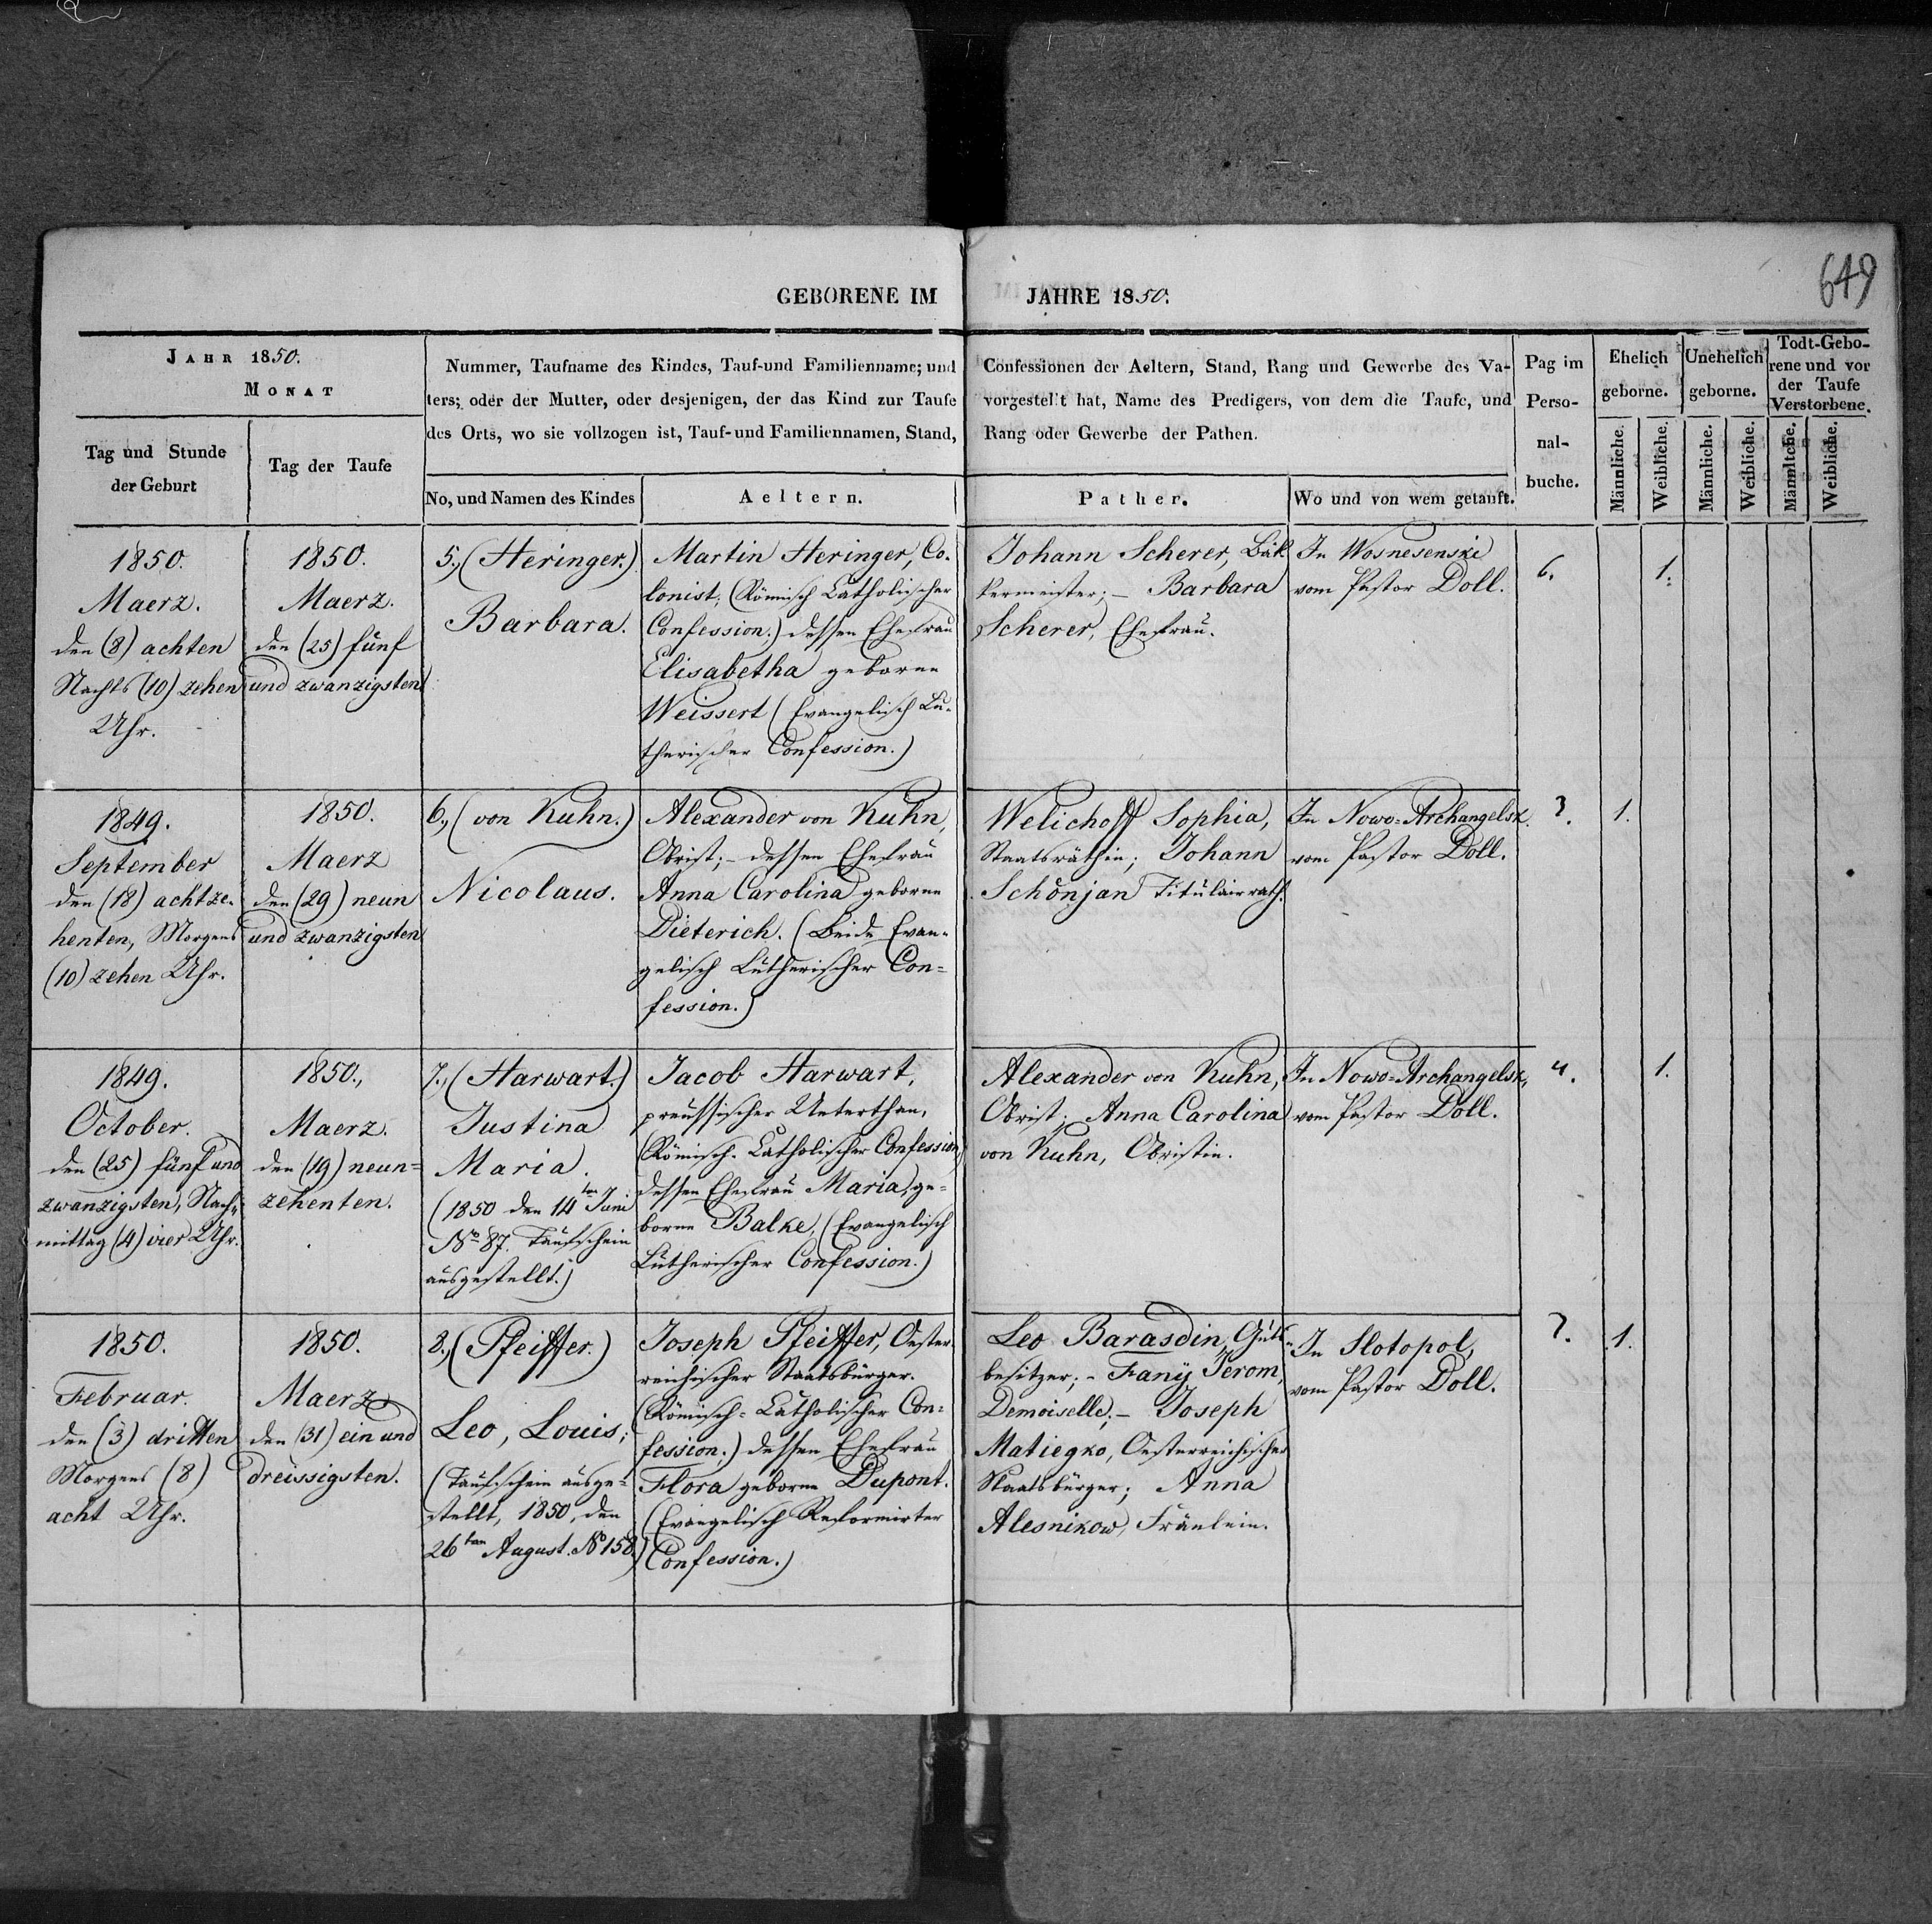 649
GEBORENE IM JAHRE 1850.
JAHR 1850.
MONAT
Tag und Stunde
der Geburt
Tag der Taufe
Nummer, Taufname des Kindes, Tauf-und Familienname; und
ters; oder der Mutter, oder desjenigen, der das Kind zur Taufe
des Orts, wo sie vollzogen ist, Tauf-und Familiennamen, Stand,
No, und Namen des Kindes
Aeltern.
Confessionen der Aeltern, Stand, Rang und Gewerbe des Va-
vorgestellt hat, Name des Predigers, von dem die Taufe, und
Rang oder Gewerbe der Pathen.
Pather.
Wo und von wem getauft.
Pag im
Perso-
nal-
buche.
Ehelich
geborne.
Unehelich
geborne.
Todt-Gebo-
rene und vor
der Taufe
Verstorbene.
Männliche.
Weibliche.
Männliche.
Weibliche.
Männliche.
Weibliche.
1850.
Maerz.
den (8) achten
Nachts (10) zehen
Uhr.
1850.
Maerz.
den (25) fünf
und zwanzigsten
5., (Heringer.)
Barbara.
Martin Heringer, Co-
lonist, (Römisch Catholischer
Confession;) dessen Ehefrau
Elisabetha geborne
Weissert (Evangelisch Lu-
therischer Confession.)
Johann Scherer, Bäk
kermeister; – Barbara
Scherer, Ehefrau.
In Wosnesenski
vom Pastor Doll.
6.
1.
1849.
September
den (18) achtze-
henten, Morgens
(10) zehen Uhr.
1850.
Maerz
den (29) neun
und zwanzigsten
6., (von Kuhn.)
Nicolaus.
Alexander von Kuhn,
Obrist; – dessen Ehefrau
Anna Carolina geborne
Dieterich. (Beide Evan-
gelisch Lutherischer Con-
fession.)
Welichoff Sophia,
Staatsräthin; Johann
Schönjan Titulairrath.
In Nowo-Archangelsk.
vom Pastor Doll.
?.
1.
1849.
October.
den (25) fünf und
zwanzigsten, Nach-
mittag (4) vier Uhr.
1850.,
Maerz.
den (19) neun-
zehenten.
7., (Harwart.)
Justina
Maria.
(1850 den 14ten Juni
No 87. Taufschein
ausgestellt.)
Jacob Harwart,
preussischer Unterthan,
(Römisch-Catholischer Confession)
dessen Ehefrau Maria, ge-
borne Balke, (Evangelisch
Lutherischer Confession.)
Alexander von Kuhn,
Obrist; Anna Carolina
von Kuhn, Obristin.
In Nowo-Archangelsk,
vom Pastor Doll.
4.
1.
1850.
Februar.
den (3) dritten
Morgens (8)
acht Uhr.
1850.
Maerz
den (31) ein und
dreissigsten.
8., (Pfeiffer.)
Leo, Louis;
(Taufschein ausge-
stellt, 1850, den
26ten August. No 158.)
Joseph Pfeiffer, Oester-
reichischer Staatsbürger.
(Römisch-Catholischer Con-
fession;) dessen Ehefrau
Flora geborne Dupont.
(Evangelisch Reformirter
Confession.)
Leo Barasdin, Guts-
besitzer; – Fanÿ Perom,
Demoiselle; – Joseph
Matiegko, Oesterreichischer
Staatsbürger; Anna
Alesnikow, Fräulein.
In Slotopol,
vom Pastor Doll.
?.
1.